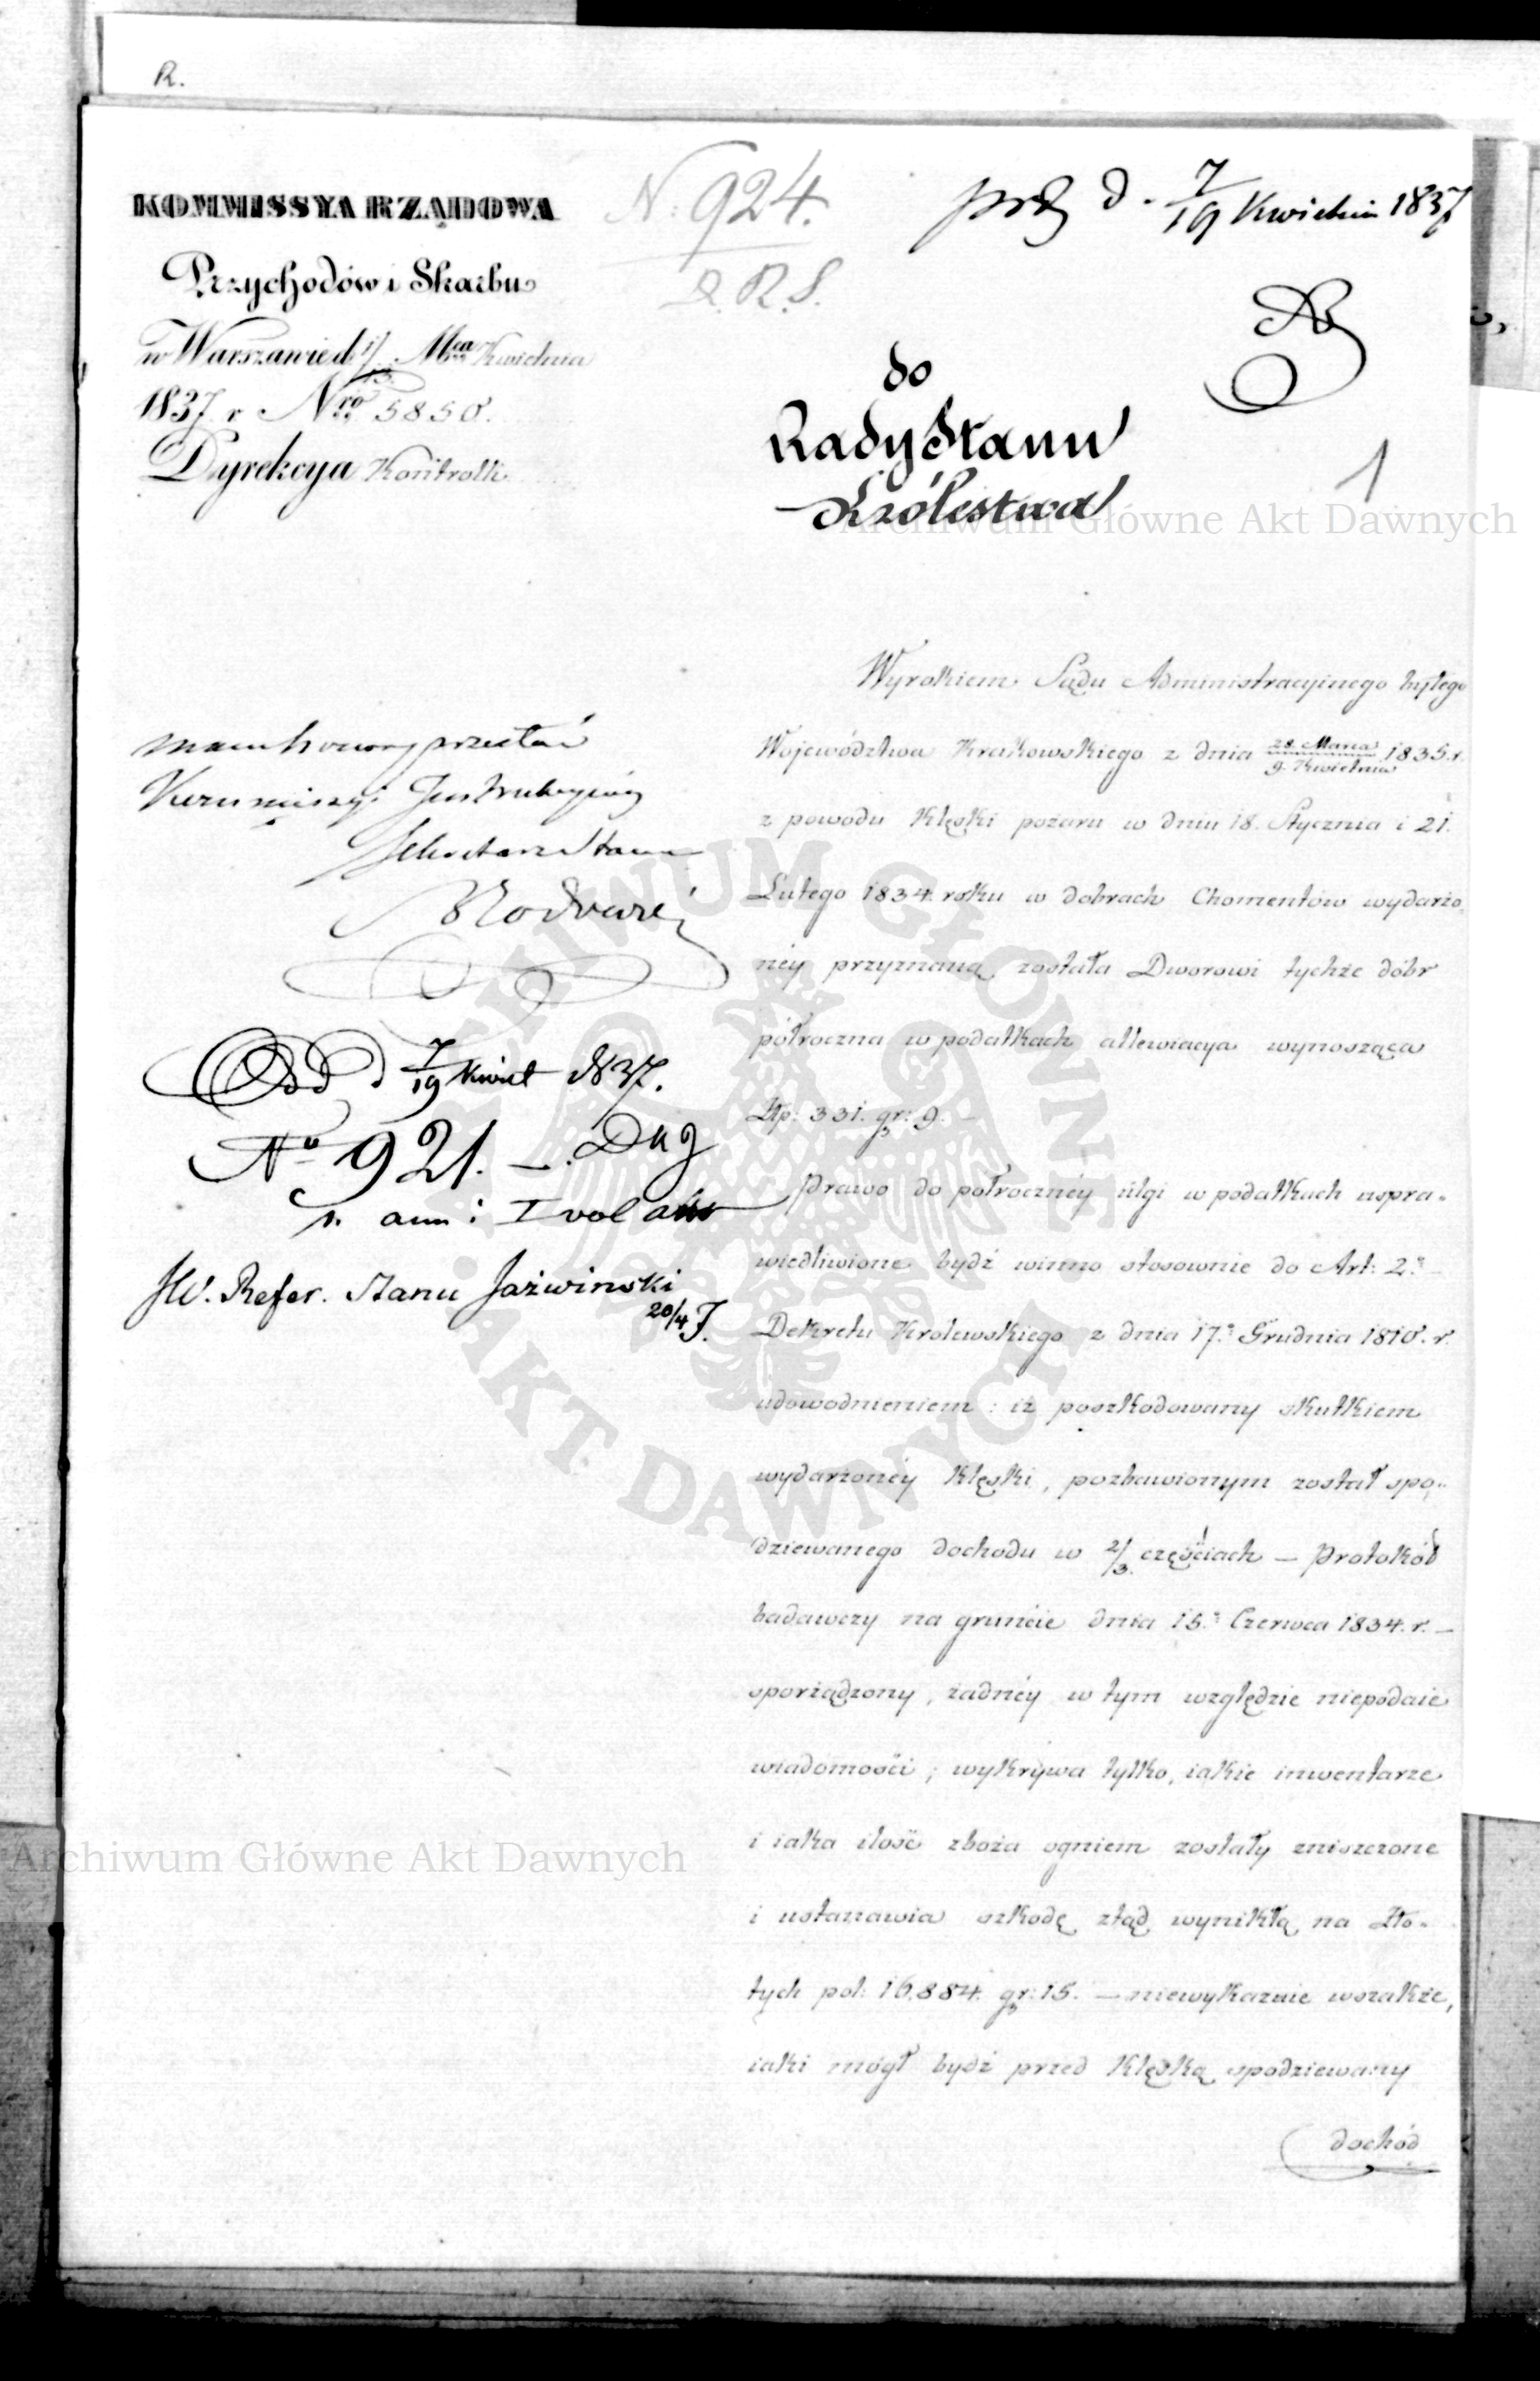 R.
KOMMISSYA RZĄDOWA
Przychodów i Skarbu
w Warszawie d. 1/13 Mca Kwietnia
1837 r Nro 5850.
Dyrekcya Kontrolli
N: 924.
D. R. S.
prz d. 7/19 Kwietnia 1837
do
Rady Stanu
Królestwa
1
przesłać
Kommissyi Instrukcyiney
Sekretarz Stanu
Odd d 7/19 Kwiet 1837.
No 921. –
JW. Refer. Stanu Jaźwinski
20/4 J.
Wyrokiem Sądu Administracyinego byłego
Województwa Krakowskiego z dnia 28. Marca / 9. Kwietnia 1835. r.
z powodu klęski pożaru w dniu 18. Stycznia i 21.
Lutego 1834. roku w dobrach Chomentów wydarzo„
néy przyznaną została Dworowi tychże dóbr
półroczna w podatkach allewiacya wynosząca
Złp: 331. gr: 9. –
Prawo do półrocznéy ulgi w podatkach uspra„
wiedliwione bydź winno stosownie do Art: 2.o
Dekretu Królewskiego z dnia 17.o Grudnia 1810. r.
udowodnieniem: iż poszkodowany skutkiem
wydarzonéy klęski, pozbawionym został spo„
dziewanego dochodu w 2/3. częściach – Protokół
badawczy na gruncie dnia 15.o Czerwca 1834. r. –
sporządzony, żadnéy w tym względzie niepodaie
wiadomości; wykrywa tylko, iakie inwentarze
i iaka ilość zboża ogniem zostały zniszczone
i ustanawia szkodę ztąd wynikłą na Zło„
tych pol: 16,884. gr: 15. – niewykaznie wszakże,
iaki mógł bydź przed klęską spodziewany
dochód
Archiwum Główne Akt Dawnych
Archiwum Główne Akt Dawnych
ARCHIWUM GŁÓWNE AKT DAWNYCH